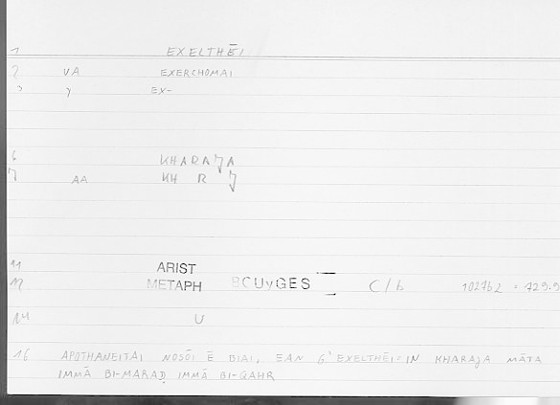 1 EXELTHĒI
2 VA EXERCHOMAI
3 y EX-
6 KHARAJA
7 AA KH R J
11 ARIST
12 METAPH BCUyGES C/b 102762 = 729.9
14 U
16 APOTHANEITAI NOSŌI Ē BIAI, EAN G' EXELTHĒI = IN KHARAJA MĀTA
IMMĀ BI-MARAḌ IMMĀ BI-QAHR